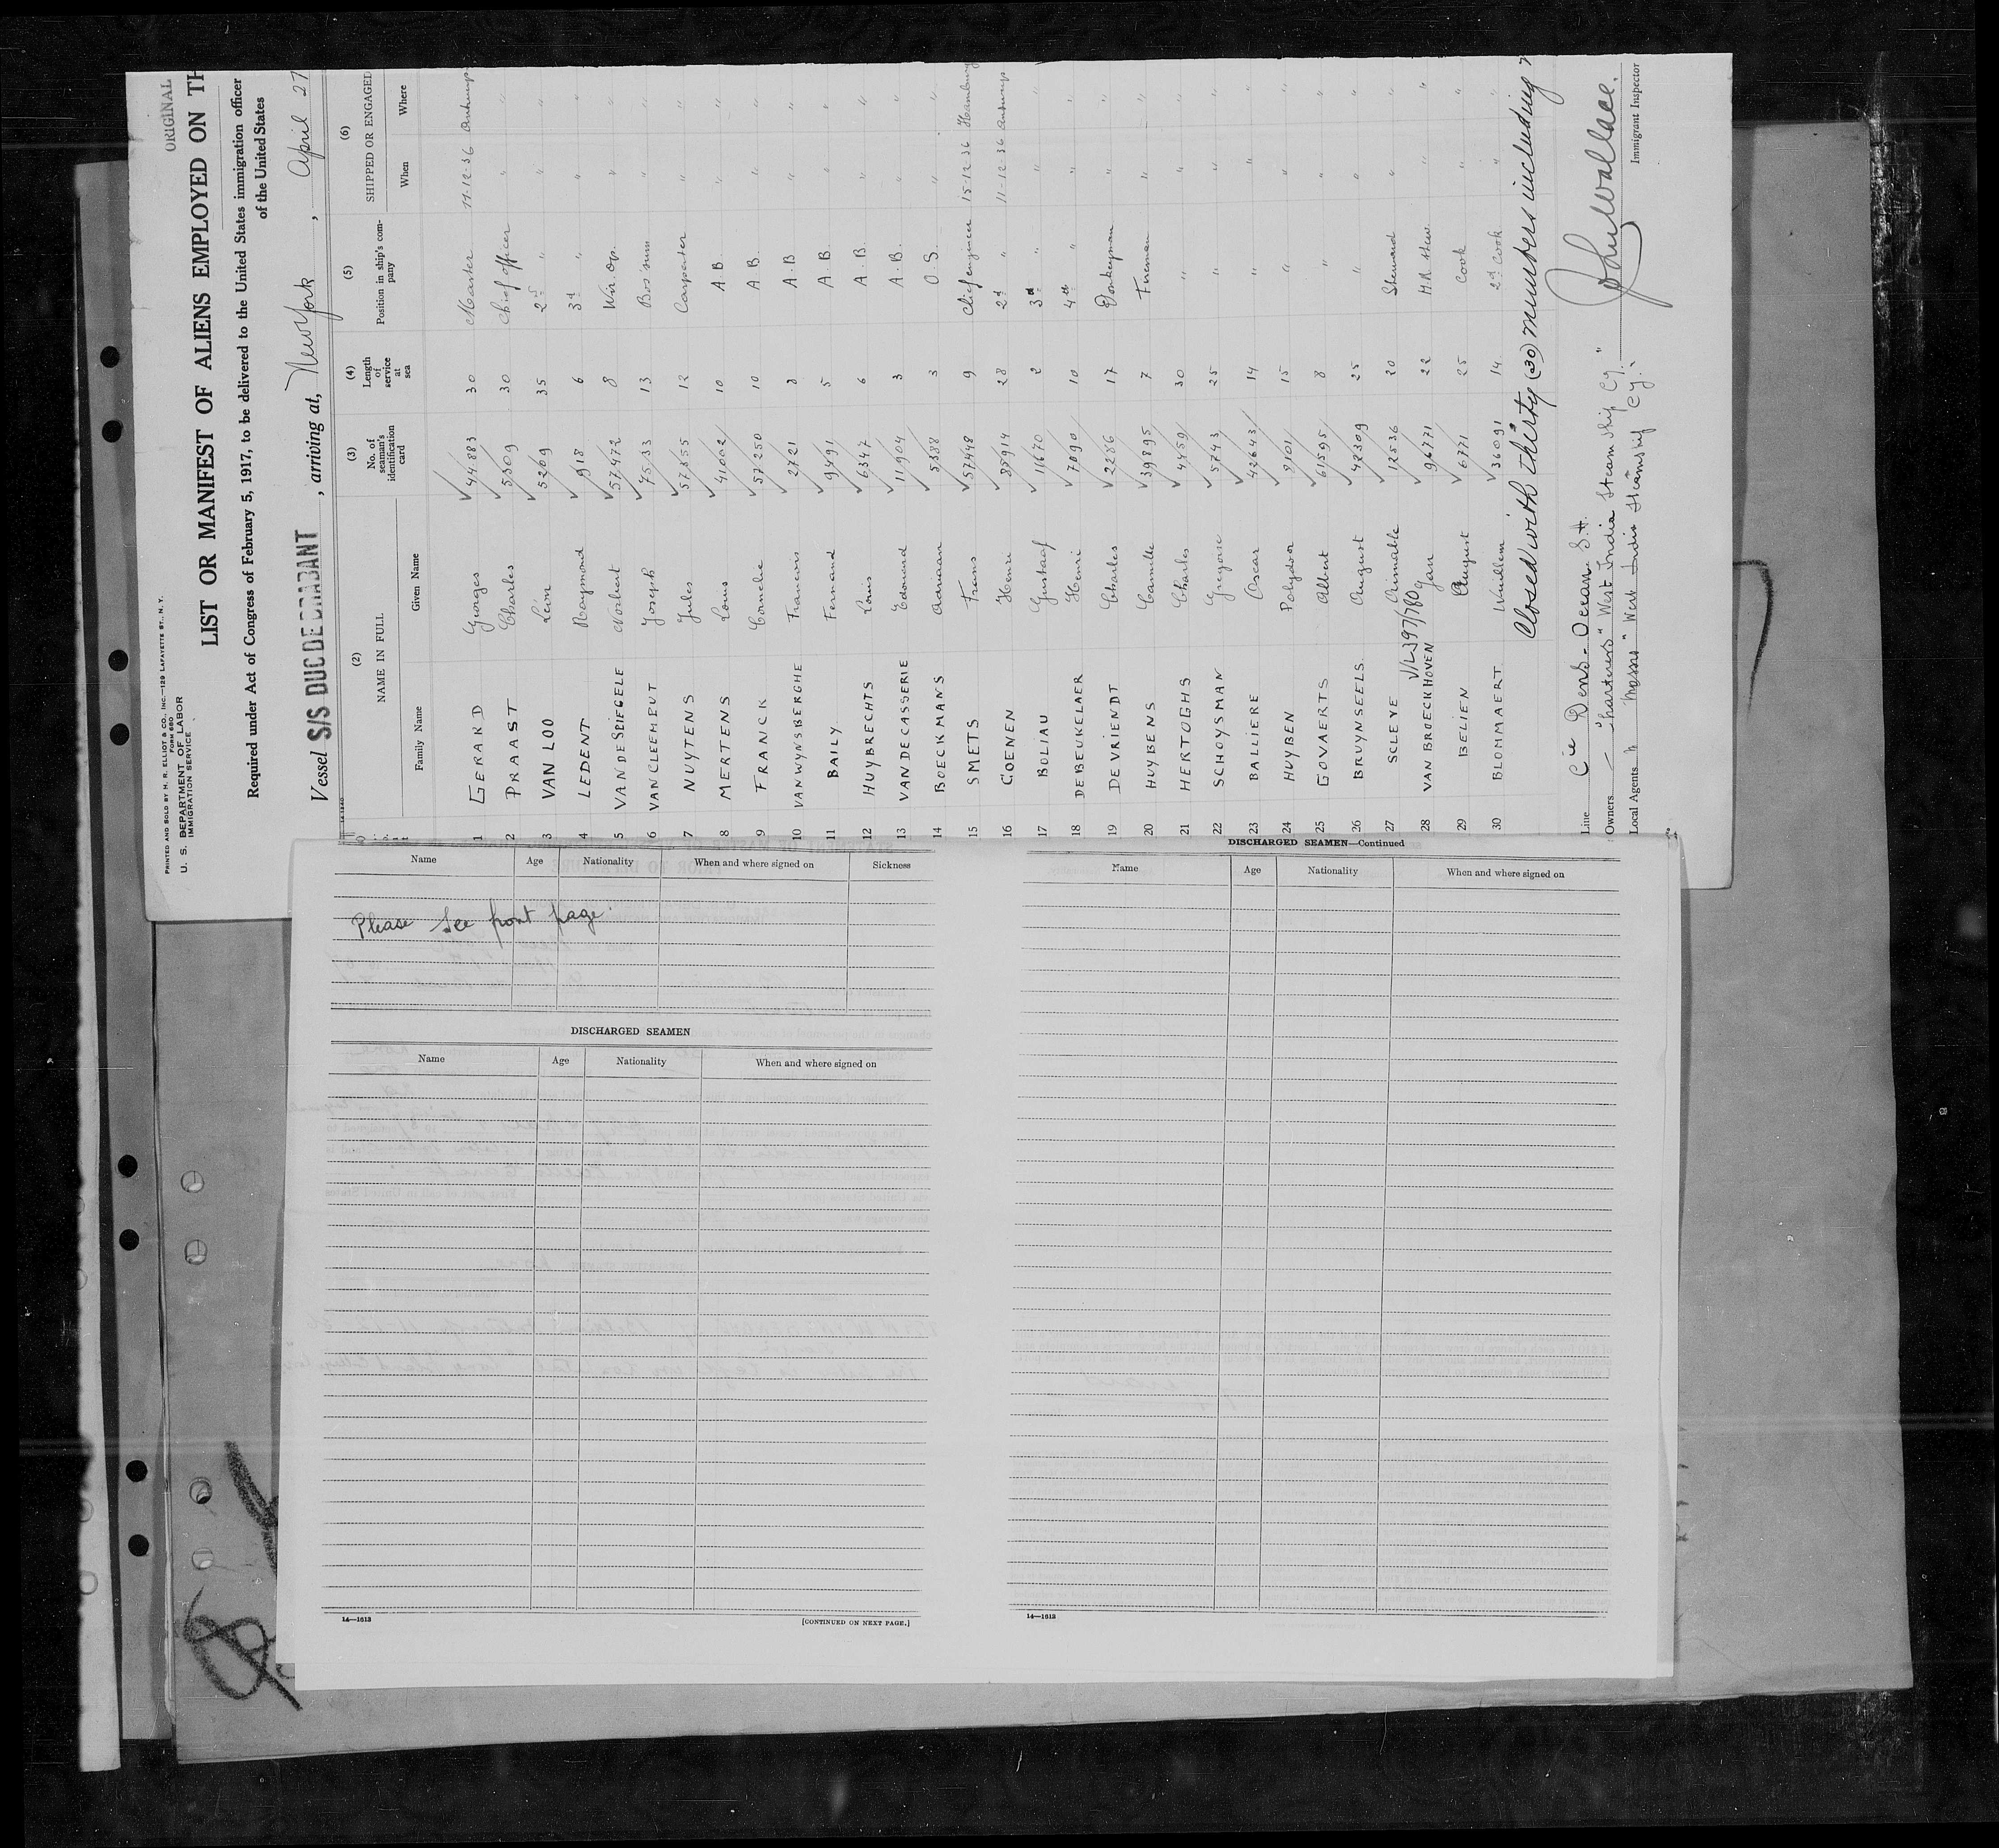 ORIGINAL
PRINTED AND SOLD BY H. R. ELLIOT & CO., INC.—129 LAFAYETTE ST., N. Y.
FORM 680
U. S. DEPARTMENT OF LABOR
IMMIGRATION SERVICE
LIST OR MANIFEST OF ALIENS EMPLOYED ON TH
Required under Act of Congress of February 5, 1917, to be delivered to the United States immigration officer
of the United States
Vessel S/S DUC DE BRABANT, arriving at, New York, April 27
(2) (3) (4) (5) (6)
NAME IN FULL No. of seaman's identification card Length of service at sea Position in ship's company SHIPPED OR ENGAGED
Family Name Given Name When Where
1 GERARD Georges 44883 30 Master 11-12-36 Antwerp
2 PRAAST Charles 5309 30 Chief officer " "
3 VAN LOO Léon 5209 35 2d " " "
4 LEDENT Raymond 918 6 3d " " "
5 VANDESPIEGELE Norbert 57472 8 Wir. op. " "
6 VANCLEEMPUT Joseph 7533 13 Bos'mun " "
7 NUYTENS Jules 57355 12 Carpenter " "
8 MERTENS Louis 41002 10 A.B. " "
9 FRANCK Cornelie 57250 10 A B. " "
10 VANWYNSBERGHE Francois 2721 8 A.B " "
11 BAILY Fernand 9491 5 A.B. " "
12 HUYBRECHTS Louis 6347 6 A.B. " "
13 VANDECASSERIE Edouard 11904 3 A.B. " "
14 BOECKMANS Adriaan 5388 3 O.S. " "
15 SMETS Frans 57448 9 Chief engineer 15-12-36 Hamburg
16 COENEN Henri 85914 28 2d " 11-12-36 Antwerp
17 BOLIAU Gustaaf 11670 2 3d " " "
18 DEBEUKELAER Henri 7090 10 4th " " "
19 DEVRIENDT Charles 2286 17 Donkeyman " "
20 HUYBENS Camille 39895 7 Fireman " "
21 HERTOGHS Charles 4459 30 " " "
22 SCHOYSMAN Gregoire 5743 25 " " "
23 BALLIERE Oscar 42643 14 " " "
24 HUYBEN Polydoor 8101 15 " " "
25 GOVAERTS Albert 61595 8 " " "
26 BRUYNSEELS August 42309 25 " " "
27 SCLEYE Aimable 12536 20 Steward " "
28 VAN BROECKHOVEN Jan 96771 22 M.R. stew. " "
29 BELIEN August 6771 25 Cook " "
30 BLOMMAERT Willem 36091 14 2d Cook " "
Closed with thirty (30) members including
Line Cie Dens-Ocean S.A.
Owners — "Charterers" West India Steam Ship Cy."
Local Agents West India Steamship Cy.
John Wallace.
Immigrant Inspector
Name Age Nationality When and where signed on Sickness
Please see front page.
DISCHARGED SEAMEN
Name Age Nationality When and where signed on
14—1613 [CONTINUED ON NEXT PAGE.]
DISCHARGED SEAMEN—Continued
Name Age Nationality When and where signed on
14—1613